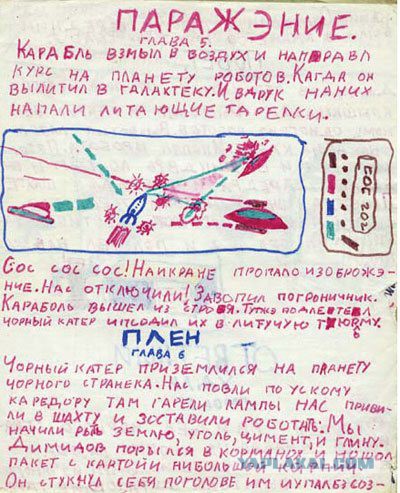 ПАРАЖЭНИЕ.
ГЛАВА 5.
КАРАБЛЬ ВЗМЫЛ В ВОЗДУХ И НАПРАВЛ
КУРС НА ПЛАНЕТУ РОБОТОВ. КАГДА ОН
ВЫЛИТИЛ В ГАЛАХТЕКУ. И ВДРУК НАНИХ
НАПАЛИ ЛИТАЮЩИЕ ТАРЕЛКИ.
СОС СОС СОС! НАИКРАНЕ ПРОПАЛО ИЗОБРОЖЭ-
НИЕ. НАС ОТКЛЮЧИЛИ! ЗАВОПИЛ ПОГРОНИЧНИК.
КАРАБОЛЬ ВЫШЕЛ ИЗ СТРОЯ. ПОДЛЕТЕЛ
ЧОРНЫЙ КАТЕР И ПОСОДИЛ ИХ В ЛИТУЧУЮ ТЮРМУ.
ПЛЕН
ГЛАВА 6
ЧОРНЫЙ КАТЕР ПРИЗЕМЛИЛСЯ НА ПЛАНЕТУ
ЧОРНОГО СТРАНЕКА. НАС ПОВЛИ ПО УСКОМУ
КАРЕДОРУ ТАМ ГАРЕЛИ ЛАМПЫ НАС ПРИВИ-
ЛИ В ШАХТУ И ЗОСТАВИЛИ РОБОТАТЬ. МЫ
НАЧИЛИ РЫТЬ ЗЕМЛЮ, УГОЛЬ, ЦИМЕНТ, И ГЛИНУ.
ДИМИДОВ ПОРЫЛСЯ В КОРМАНАХ И НОШОЛ
ПАКЕТ С КАРТОЙ И НИБОЛЬШОЙ
ОН СТУКНУЛ СЕБЯ ПОГОЛОВЕ ИМ И УПАЛ БЕЗ СОЗ-
YAPLAKAL.COM